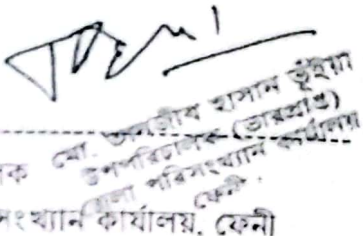 মো. তানজীব হাসান ভূঁইয়া
উপপরিচালক (ভারপ্রাপ্ত)
জেলা পরিসংখ্যান কার্যালয়
ফেনী।
ক
সংখ্যান কার্যালয়, ফেনী